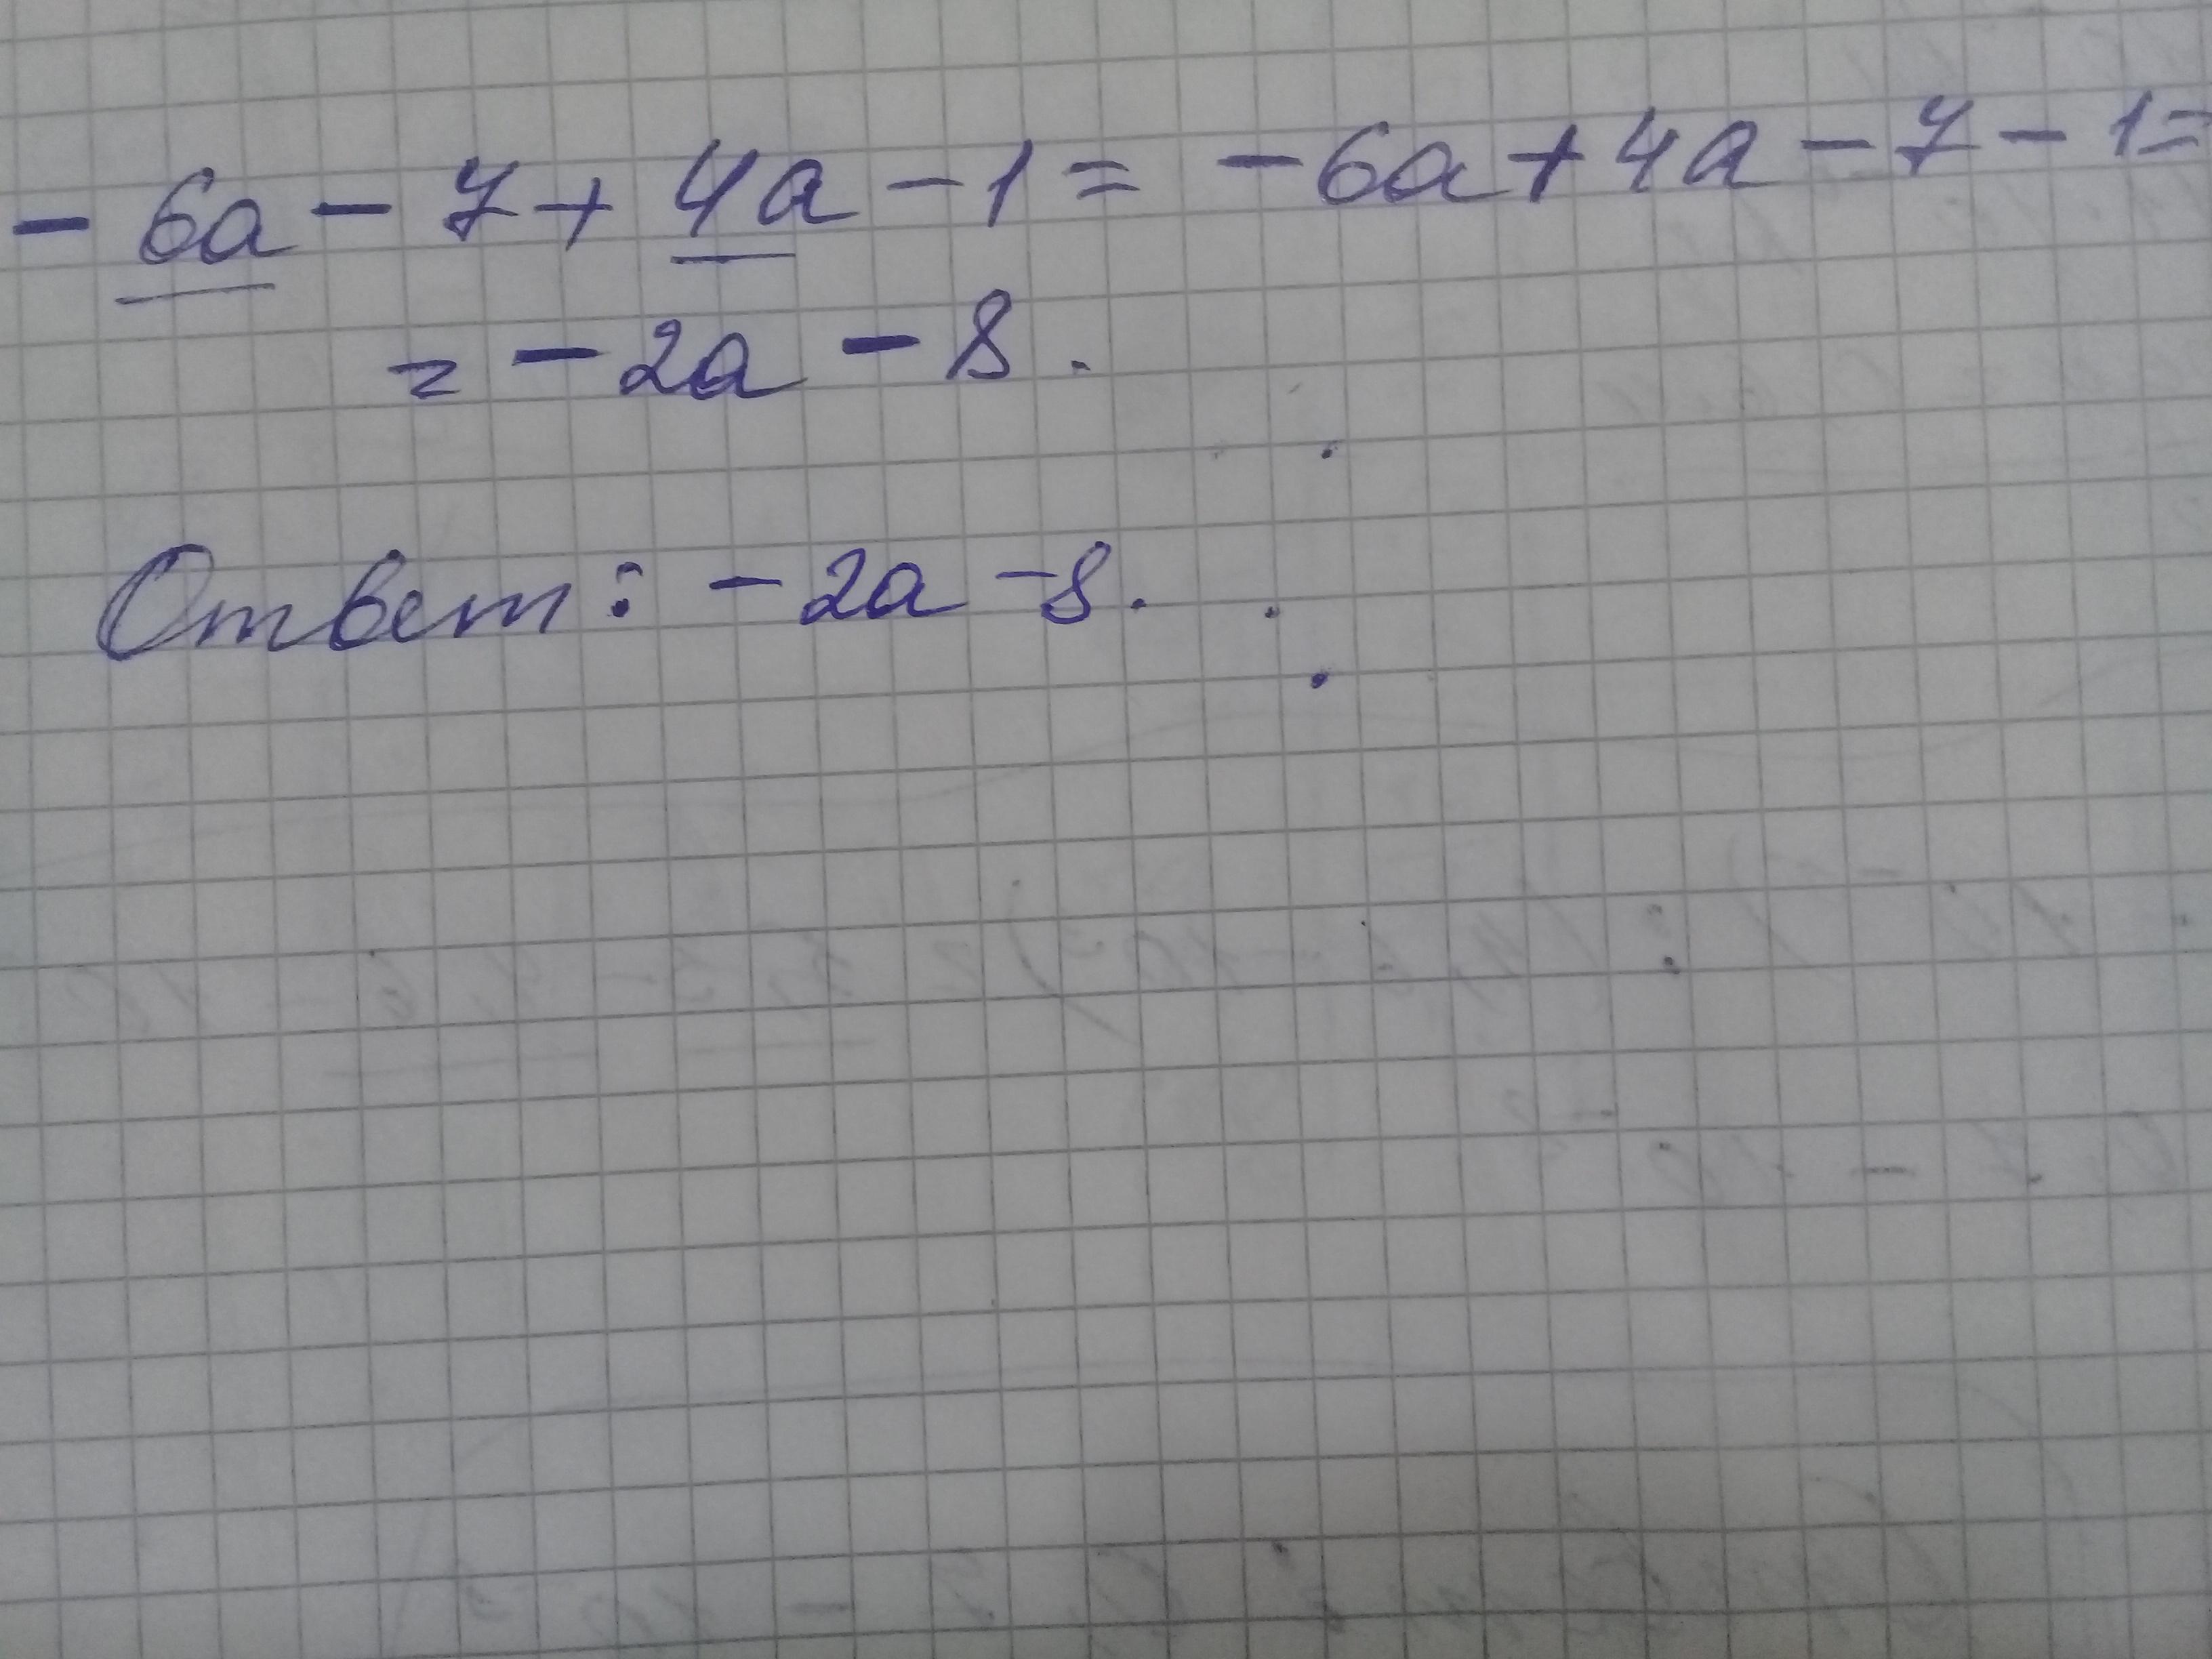 - 6a - 7 + 4a - 1 = - 6a + 4a - 7 - 1 =
= - 2a - 8.
Ответ: - 2a - 8.